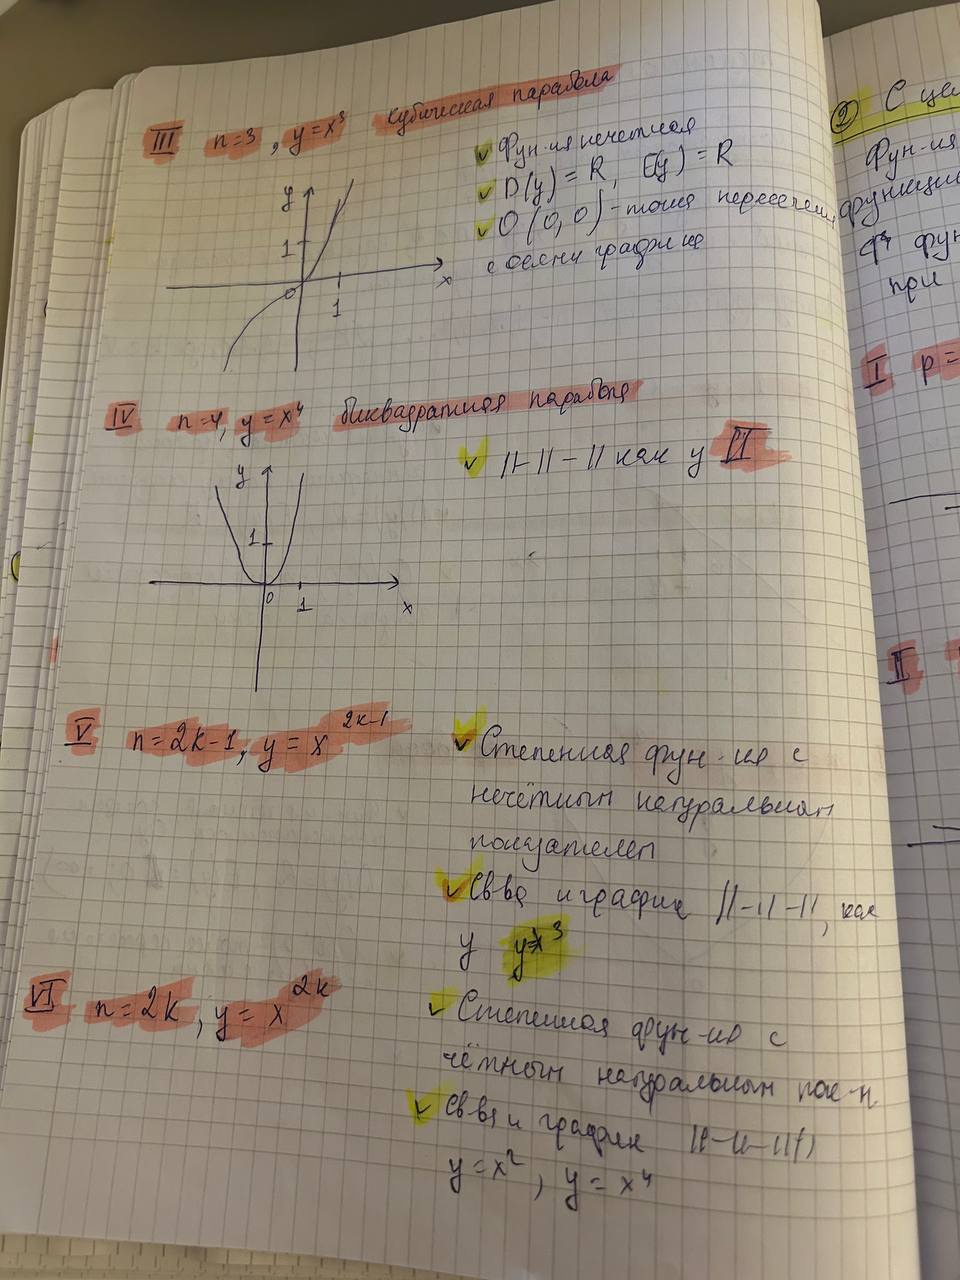 III n=3, y=x³ кубическая парабола
✓ Фун-ия нечетная
✓ D(y) = R, E(y) = R
✓ O (0, 0) - точка пересечения
с осями графика
y
1
0
1
x
IV n=4, y=x⁴ биквадратная парабола
✓ ||-||-|| как у II
y
1
0
1
x
V n=2k-1, y=x^{2k-1}
✓ Степенная фун-ия с
нечётным натуральным
показателем
✓ Св-ва и график ||-||-||, как
у y=x³
VI n=2k, y=x^{2k}
✓ Степенная фун-ия с
чётным натуральным пок-м
✓ Св-ва и график ||-||-||
y=x², y=x⁴
② С
Фун-ия
при
I p=
II